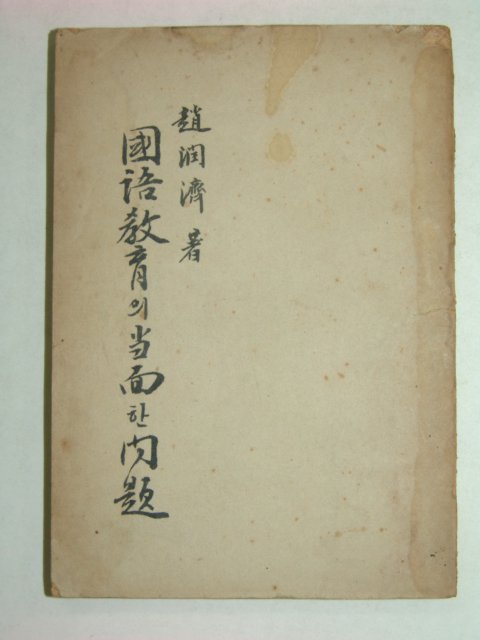 趙潤濟 著
國語敎育의 当面한 問題